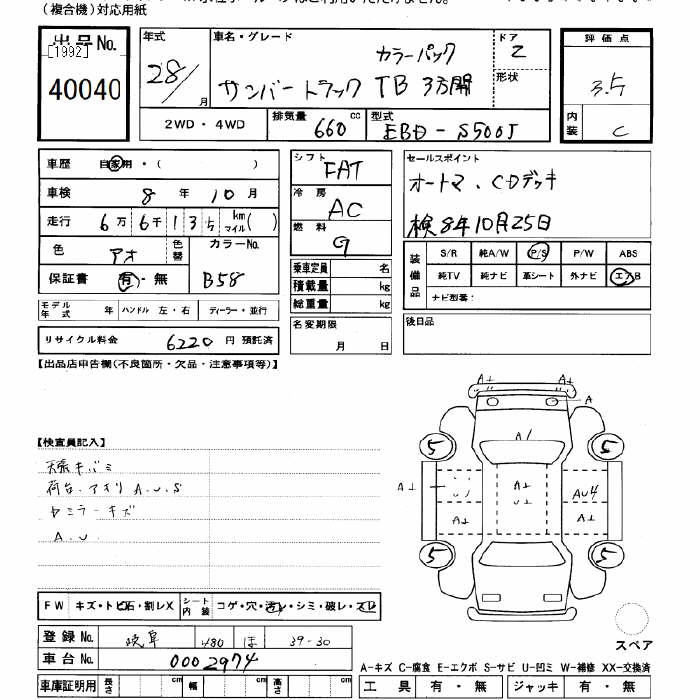 (複合機)対応用紙
出品No.
[1992]
40040
年式 28/ 月
車名・グレード カラーパック
サンバートラック TB 3方開
ドア 2
形状
評価点
3.5
内装 C
2WD・4WD
排気量 660 cc
型式 EBD-S500J
車歴 自家用・( )
車検 8年 10月
走行 6万 6千 135 km マイル( )
色 アオ 色替 カラーNo.
保証書 有・無 B58
モデル年式 年 ハンドル 左・右 ディーラー・並行
リサイクル料金 6220 円 預託済
シフト FAT
冷房 AC
燃料 G
乗車定員 名
積載量 kg
総重量 kg
名変期限
月 日
セールスポイント
オートマ、CDデッキ
検8年10月25日
装備品
S/R 純A/W P/S P/W ABS
純TV 純ナビ 革シート 外ナビ エアB
ナビ型番:
後日品
【出品店申告欄(不良箇所・欠品・注意事項等)】
【検査員記入】
天張キバミ
荷台.アオリ A.U.S
ドミラーキズ
A.U.
A⊥ A⊥
A
A/
5 5
A⊥ A⊥ AU4
A⊥ A⊥ A⊥
5 5
スペア
FW キズ・トビ石・割レX シート内装 コゲ・穴・汚レ・シミ・破レ・スレ
登録No. 岐阜 480 ほ 39-30
車台No. 0002974
車庫証明用 長さ cm 幅 cm 高さ cm
A-キズ C-腐食 E-エクボ S-サビ U-凹ミ W-補修 XX-交換済
工具 有・無 ジャッキ 有・無